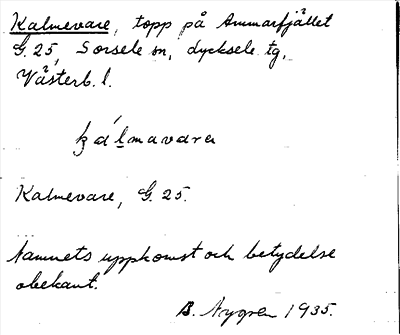 Kalmevare, topp på Ammarfjället
G. 25, Sorsele sn, Lycksele tg,
Västerb. l.
kálmavarɐ
Kalmevare, G. 25.
Namnets uppkomst och betydelse
obekant.
B. Nygren 1935.